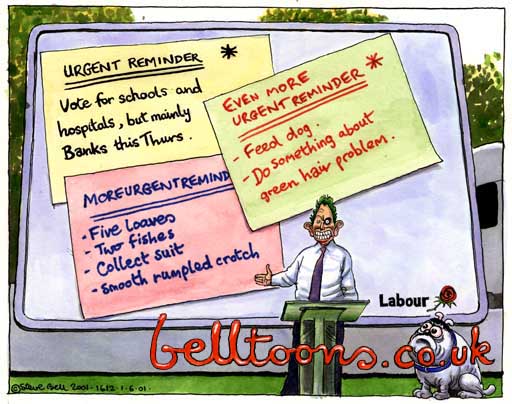 URGENT REMINDER *
Vote for schools and
hospitals, but mainly
Banks this Thurs.
EVEN MORE *
URGENT REMINDER
- Feed dog.
- Do something about
green hair problem.
MORE URGENT REMIND
- Five Loaves
- Two fishes
- Collect suit
- smooth rumpled crotch
Labour
belltoons.co.uk
©Steve Bell 2001-1612-1.6.01.